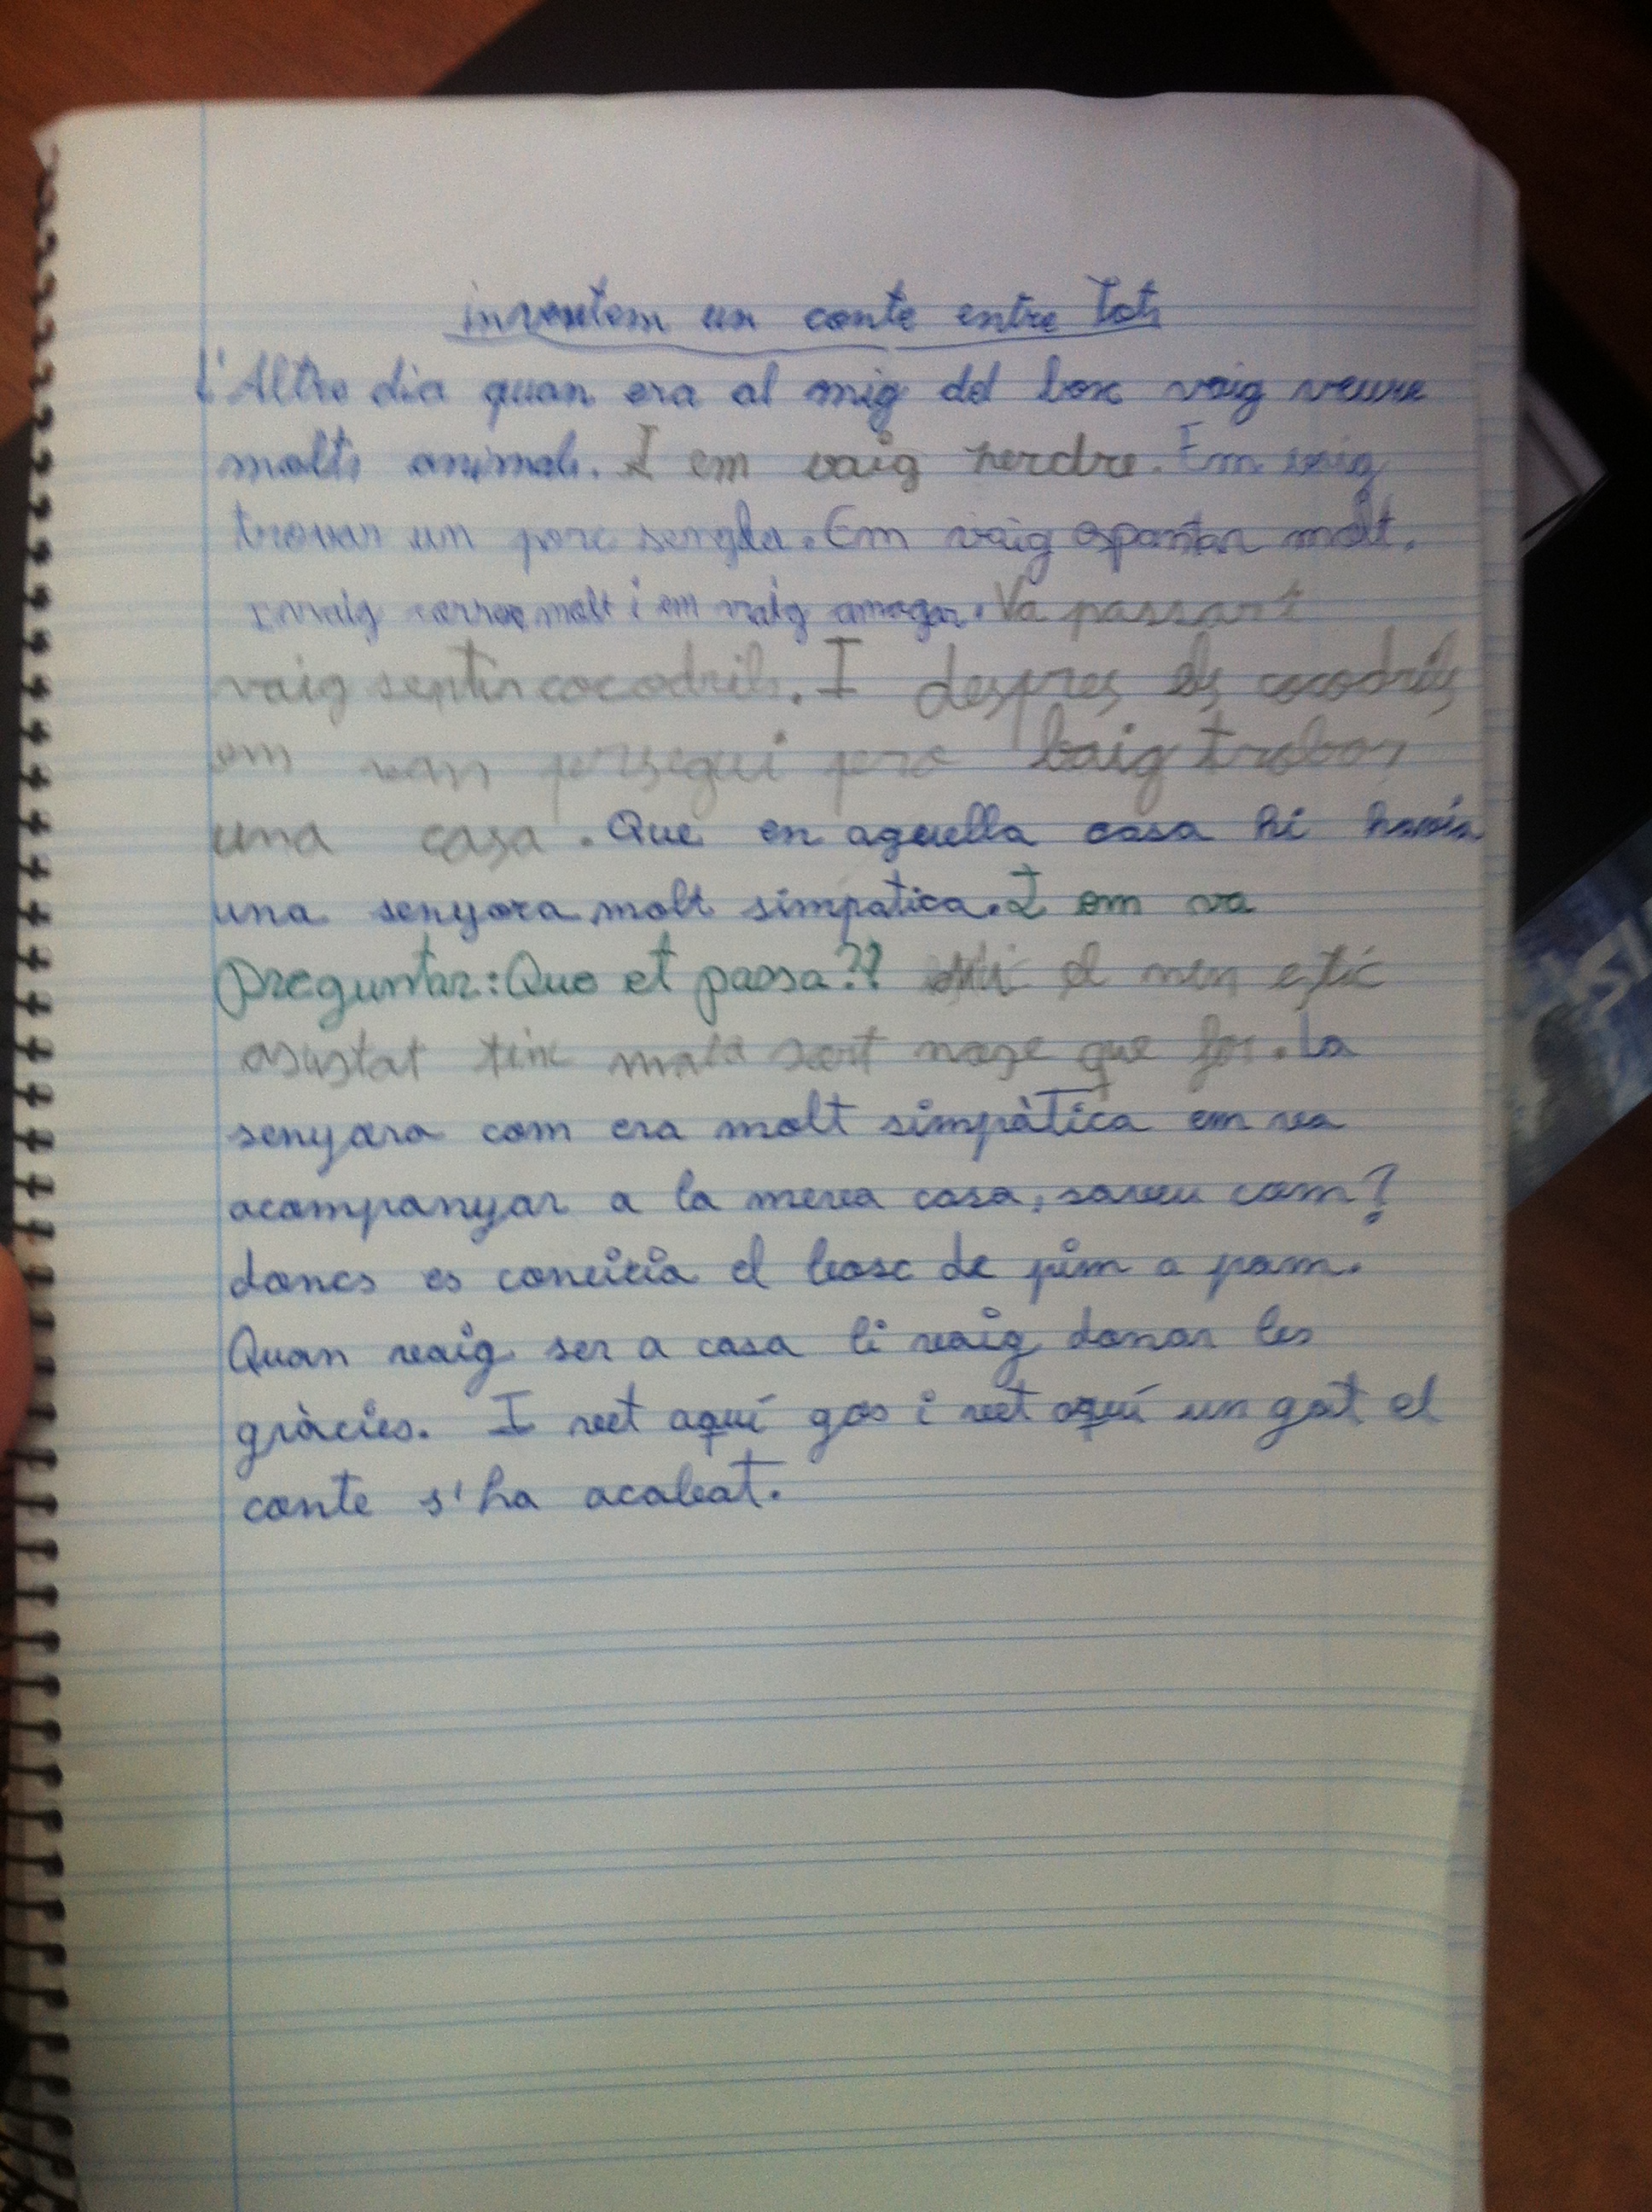 inventem un conte entre tots
L'Altre dia quan era al mig del bosc vaig veure
molts animals. I em vaig perdre. Em vaig
trovar un porc sengla. Em vaig espantar molt.
I vaig correr molt i em vaig amagar. Va passar i
vaig sentir cocodrils. I despres els cocodrils
em van persegui pero baig trobar
una casa. Que en aquella casa hi havia
una senyora molt simpatica. I em va
preguntar: Que et passa?? el nen estic
asustat tinc mala sort nose que fer. La
senyora com era molt simpàtica em va
acompanyar a la meva casa, saveu com?
doncs es coneixia el bosc de pim a pam.
Quan vaig ser a casa li vaig donar les
gràcies. I vet aquí gos i vet aquí un gat el
conte s'ha acabat.